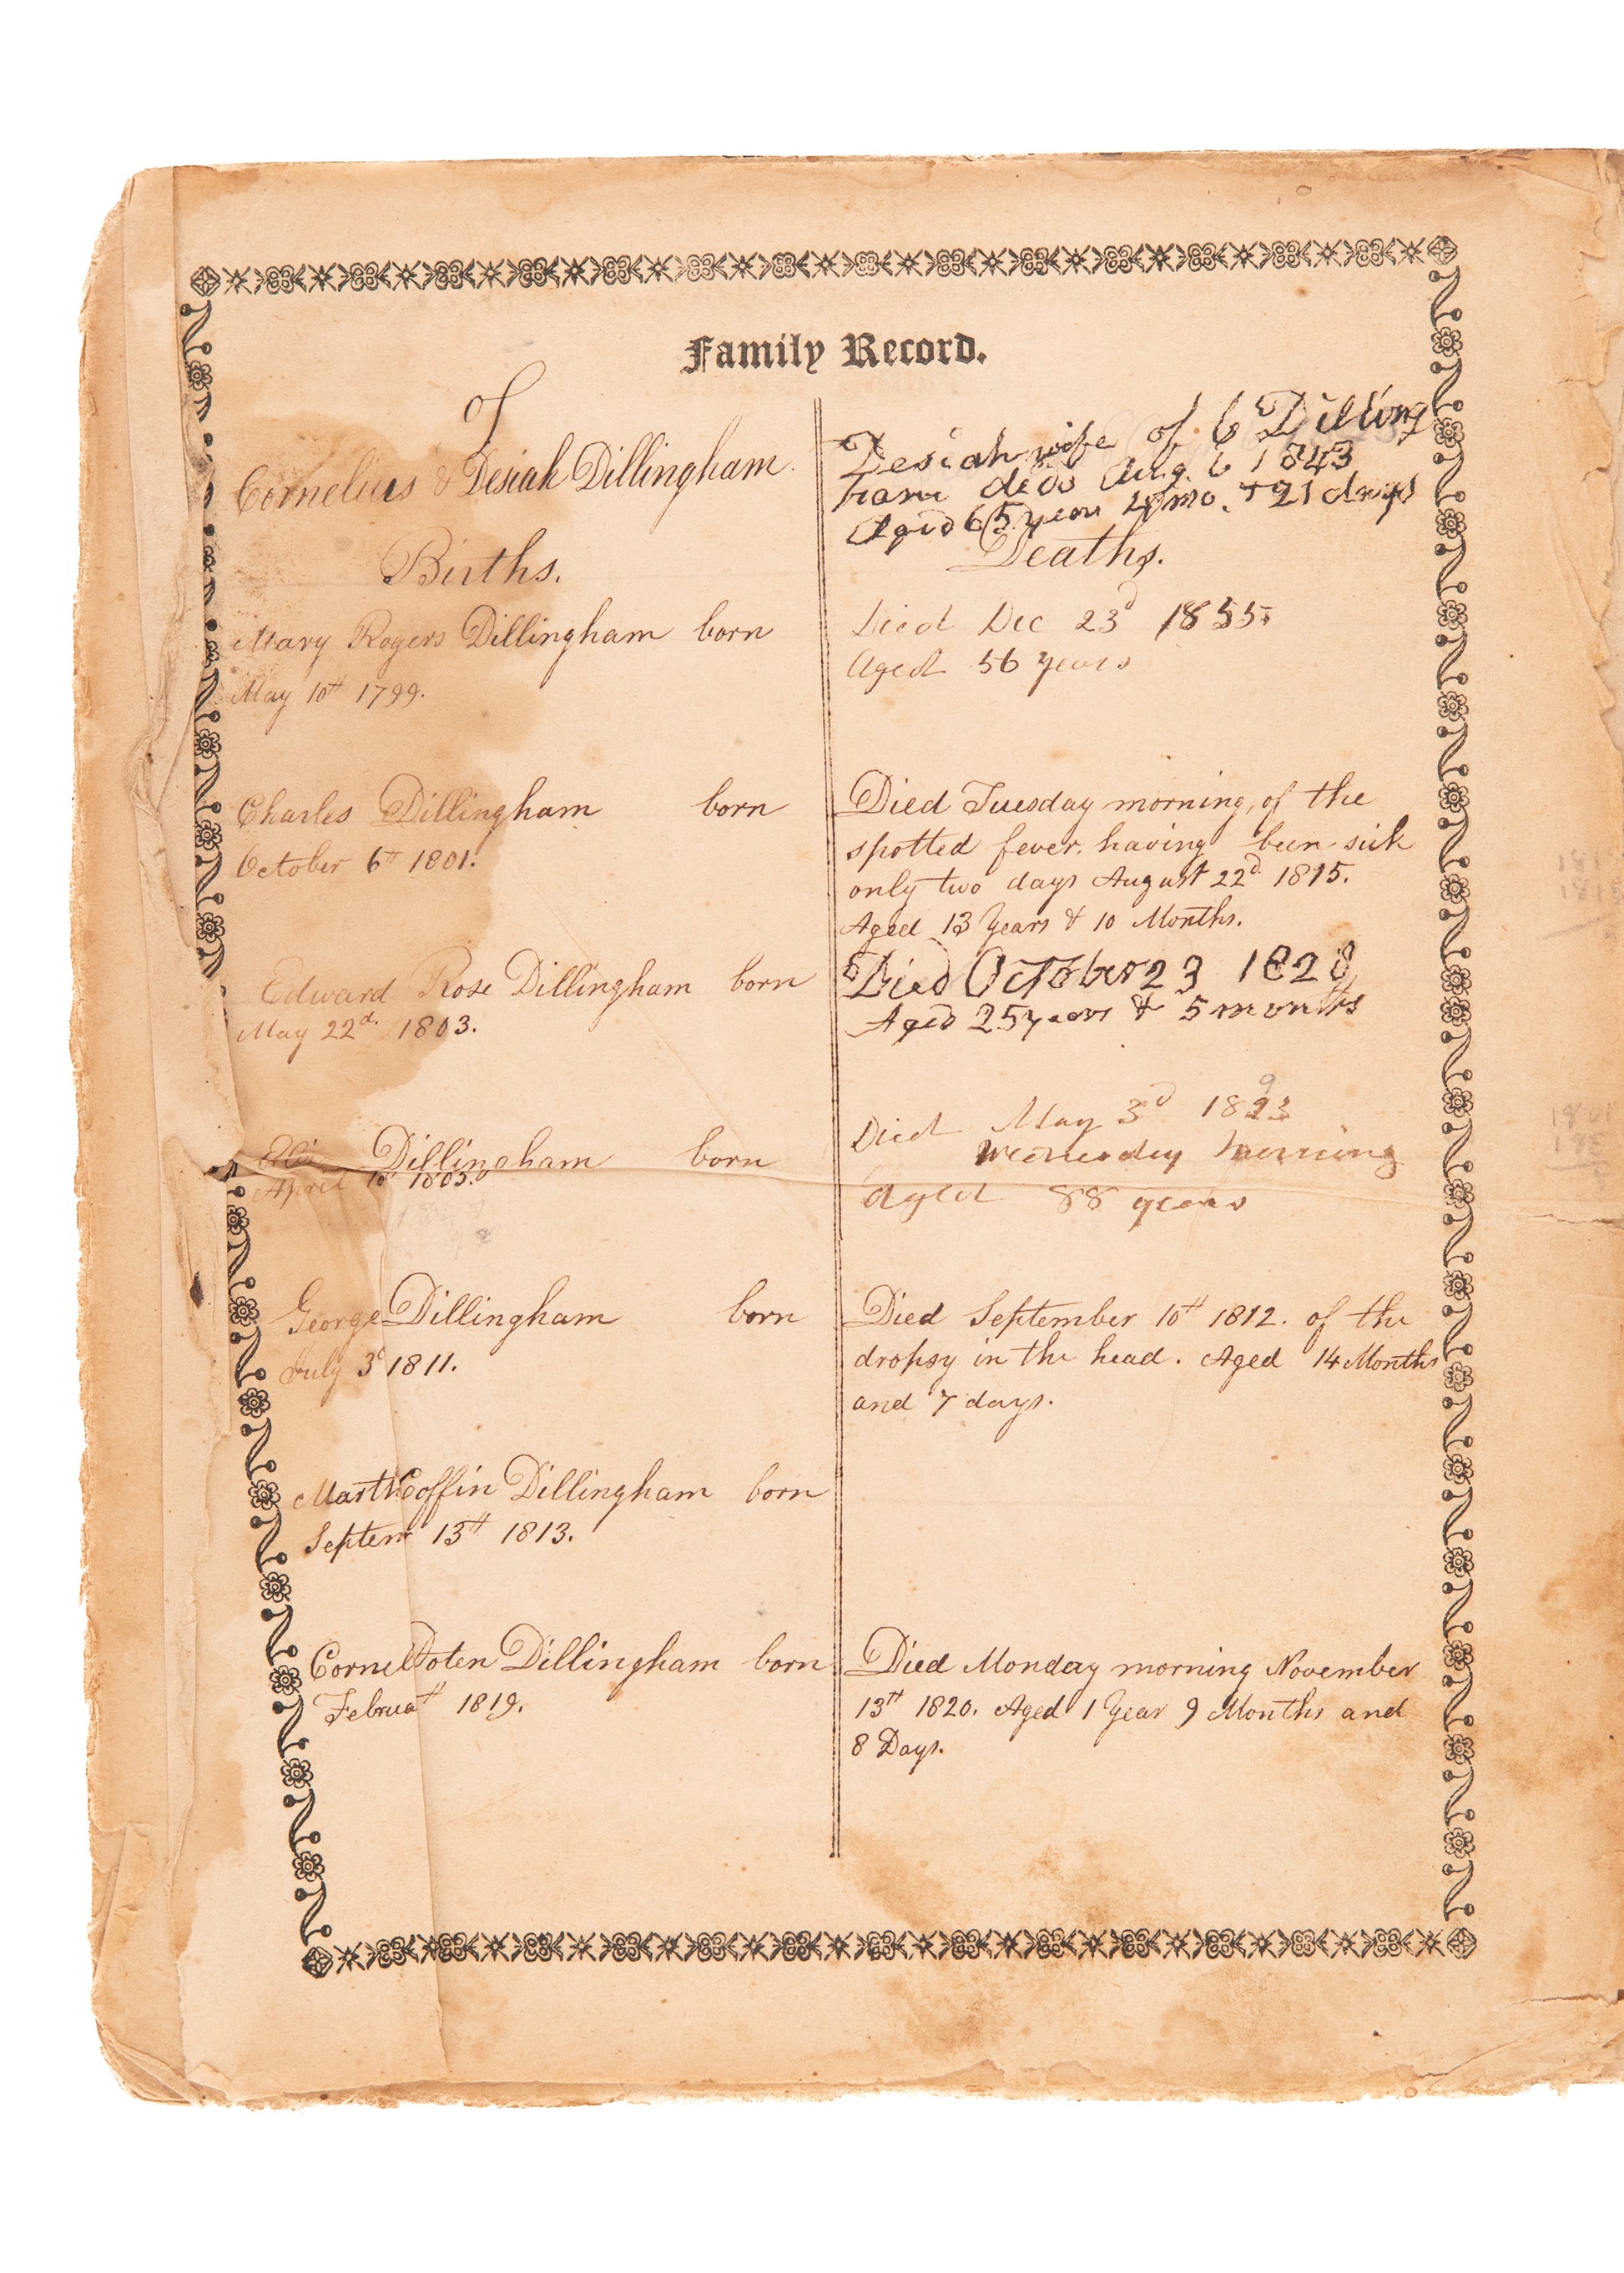 Family Record.
of
Cornelius & Desiah Dillingham
Births.
Mary Rogers Dillingham born
May 10th 1799.
Charles Dillingham born
October 6th 1801.
Edward Rose Dillingham born
May 22d. 1803.
Dillingham born
April 10th 1805.
George Dillingham born
July 3d 1811.
Marth Coffin Dillingham born
Septem 13th 1813.
Cornel Doten Dillingham born
Februa th 1819.
Desiah wife of C Dilling
ham died Aug. 6 1843
Aged 65 years 4 mo. + 21 days
Deaths.
Died Dec 23d 1855
Aged 56 years
Died Tuesday morning, of the
spotted fever. having been sick
only two days August 22d. 1815.
Aged 13 Years & 10 Months.
Died October 23 1828
Aged 25 years & 5 months
Died May 3d 1893
9
Wednesday morning
aged 88 years
Died September 10th 1812. of the
dropsy in the head. Aged 14 Months
and 7 days.
Died Monday morning November
13th 1820. Aged 1 Year 9 Months and
8 Days.